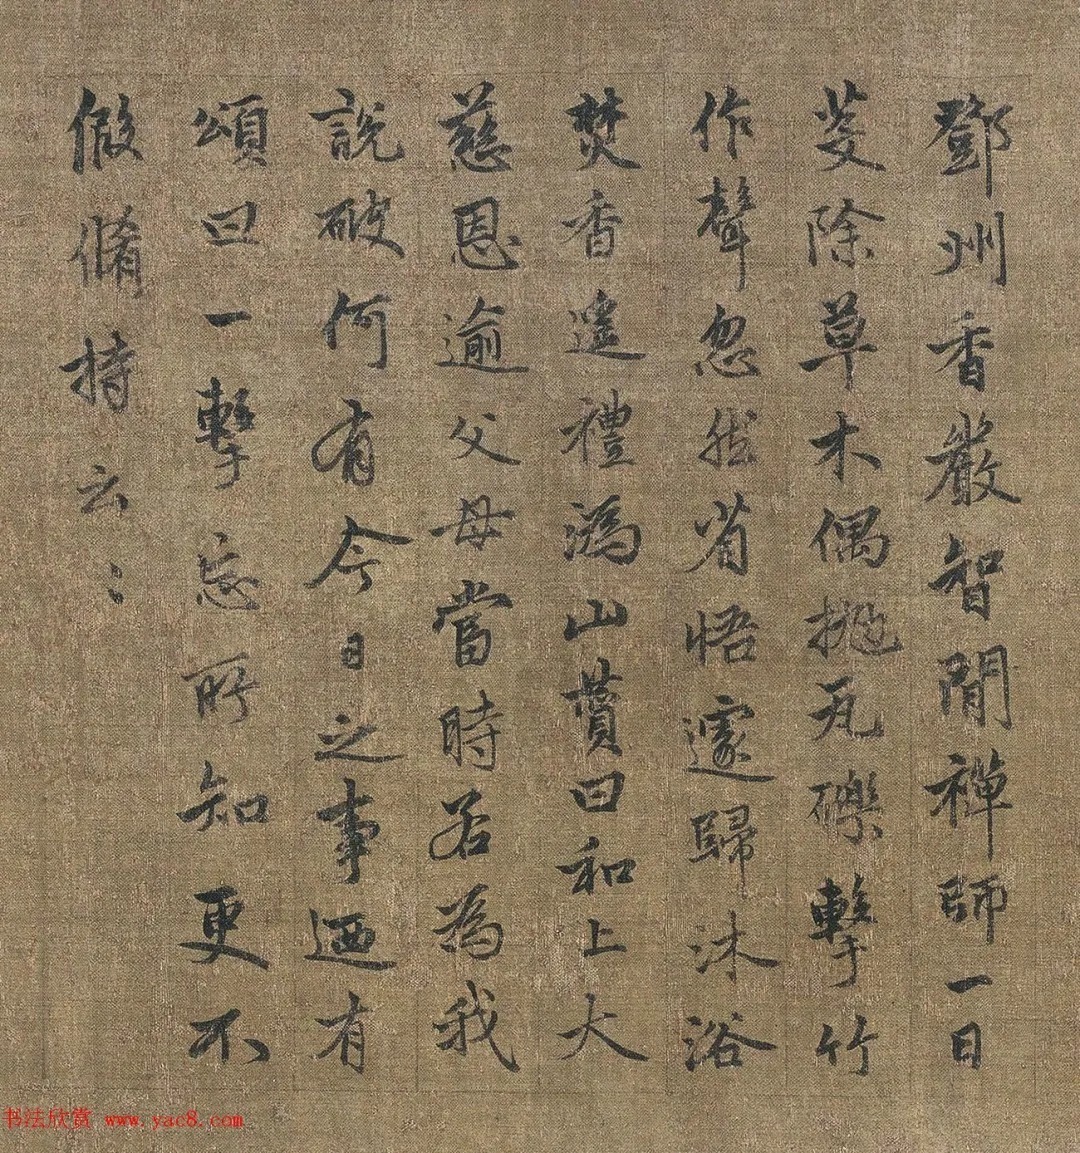 鄧州香嚴智閒禪師一日
芟除草木偶拋瓦礫擊竹
作聲忽然省悟遽歸沐浴
焚香遙禮溈山賛曰和上大
慈恩逾父母當時若為我
說破何有今日之事迺有
頌曰一擊忘所知更不
假脩持云〻
书法欣赏 www.yac8.com